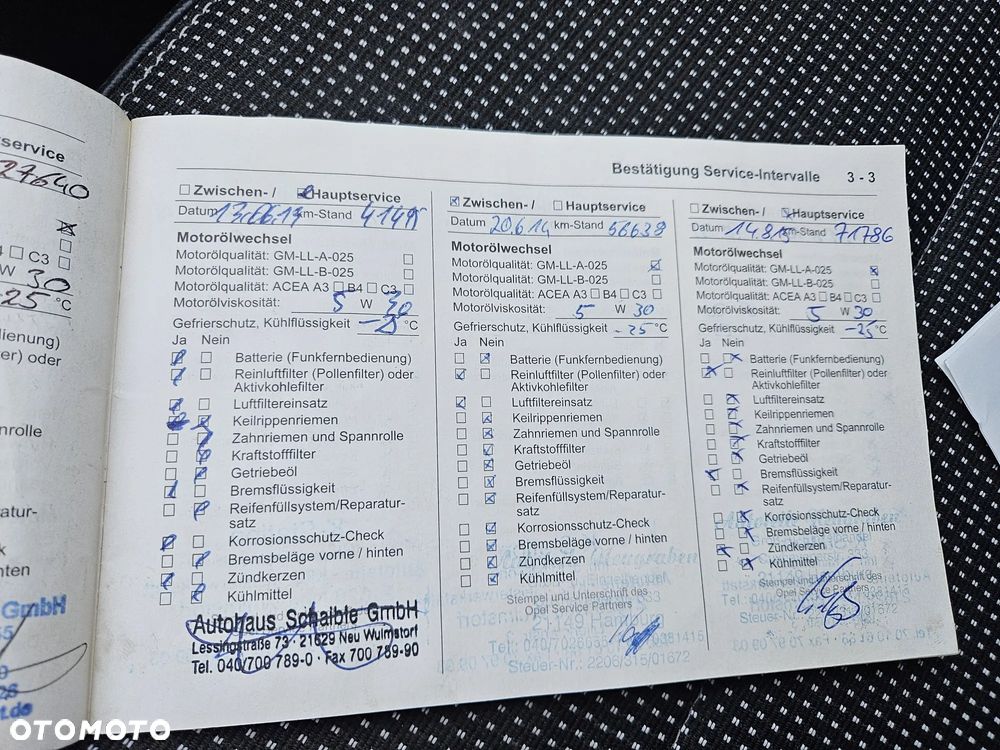 service
27640
C3
W 30
-25 °C
dienung)
er) oder
nrolle
atur-
k
nten
GmbH
Bestätigung Service-Intervalle 3 - 3
Zwischen- / Hauptservice
Datum km-Stand
Motorölwechsel
Motorölqualität: GM-LL-A-025
Motorölqualität: GM-LL-B-025
Motorölqualität: ACEA A3 B4 C3
Motorölviskosität: 5 W 30
Gefrierschutz, Kühlflüssigkeit -25 °C
Ja Nein
Batterie (Funkfernbedienung)
Reinluftfilter (Pollenfilter) oder
Aktivkohlefilter
Luftfiltereinsatz
Keilrippenriemen
Zahnriemen und Spannrolle
Kraftstofffilter
Getriebeöl
Bremsflüssigkeit
Reifenfüllsystem/Reparatur-
satz
Korrosionsschutz-Check
Bremsbeläge vorne / hinten
Zündkerzen
Kühlmittel
Autohaus Schaible GmbH
Lessingstraße 73 · 21629 Neu Wulmstorf
Tel. 040/700 789-0 · Fax 700 789-90
Zwischen- / Hauptservice
Datum 20.6.14 km-Stand 56638
Motorölwechsel
Motorölqualität: GM-LL-A-025
Motorölqualität: GM-LL-B-025
Motorölqualität: ACEA A3 B4 C3
Motorölviskosität: 5 W 30
Gefrierschutz, Kühlflüssigkeit -25 °C
Ja Nein
Batterie (Funkfernbedienung)
Reinluftfilter (Pollenfilter) oder
Aktivkohlefilter
Luftfiltereinsatz
Keilrippenriemen
Zahnriemen und Spannrolle
Kraftstofffilter
Getriebeöl
Bremsflüssigkeit
Reifenfüllsystem/Reparatur-
satz
Korrosionsschutz-Check
Bremsbeläge vorne / hinten
Zündkerzen
Kühlmittel
Stempel und Unterschrift des
Opel Service Partners
21149 Hamburg
Steuer-Nr.: 2206/315/01672
Zwischen- / Hauptservice
Datum 14.8.15 km-Stand 71786
Motorölwechsel
Motorölqualität: GM-LL-A-025
Motorölqualität: GM-LL-B-025
Motorölqualität: ACEA A3 B4 C3
Motorölviskosität: 5 W 30
Gefrierschutz, Kühlflüssigkeit -25 °C
Ja Nein
Batterie (Funkfernbedienung)
Reinluftfilter (Pollenfilter) oder
Aktivkohlefilter
Luftfiltereinsatz
Keilrippenriemen
Zahnriemen und Spannrolle
Kraftstofffilter
Getriebeöl
Bremsflüssigkeit
Reifenfüllsystem/Reparatur-
satz
Korrosionsschutz-Check
Bremsbeläge vorne / hinten
Zündkerzen
Kühlmittel
Stempel und Unterschrift des
Opel Service Partners
OTOMOTO